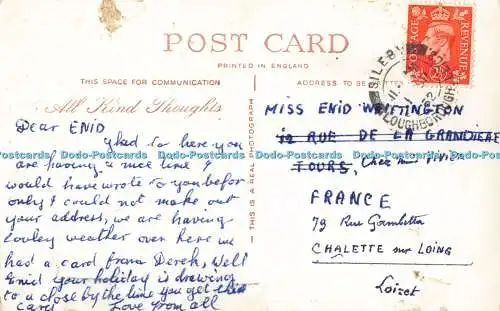 POST CARD
PRINTED IN ENGLAND
THIS SPACE FOR COMMUNICATION
ADDRESS TO BE
All Kind Thoughts
POSTAGE REVENUE
SILEBY
LOUGHBOROUGH
THIS IS A REAL PHOTOGRAPH
Dear ENID
to here you
are having a nice time I
would have wrote to you befor
only I could not make out
your address, we are having
looley weather over here we
had a card from Derek, Well
Enid your holiday is drawing
to a close by the time you get this
card Love from all
MISS ENID WHITTINGTON
RUE DE LA GRANDIERE
TOURS, Chez
FRANCE
79 Rue Gambetta
CHALETTE sur LOING
Loiret
Dodo-Postcards Dodo-Postcards Dodo-Postcards Dodo-Postcards Dodo-Postcards Dodo-Postcards